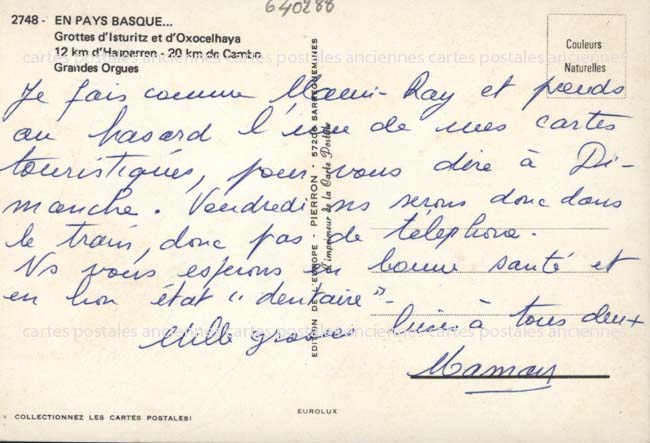 640288
2748 - EN PAYS BASQUE...
Grottes d'Isturitz et d'Oxocelhaya
12 km d'Hasparren - 20 km de Cambo
Grandes Orgues
Couleurs
Naturelles
Je fais comme Mami-Ray et prends
au hasard l'une de mes cartes
touristiques, pour vous dire à Di-
manche. Vendredi ns serons donc dans
le train, donc pas de téléphone.
Ns vous espérons en bonne santé et
en bon état "dentaire".
Mille grosses bises à tous deux
Maman
EDITION DE L'EUROPE - PIERRON - 57206 SARREGUEMINES
L'imprimeur de la Carte Postale
cartes postales anciennes cartes postales anciennes cartes postales anciennes
cartes postales anciennes cartes postales anciennes cartes postales anciennes
cartes postales anciennes cartes postales anciennes cartes postales anciennes
COLLECTIONNEZ LES CARTES POSTALES!
EUROLUX